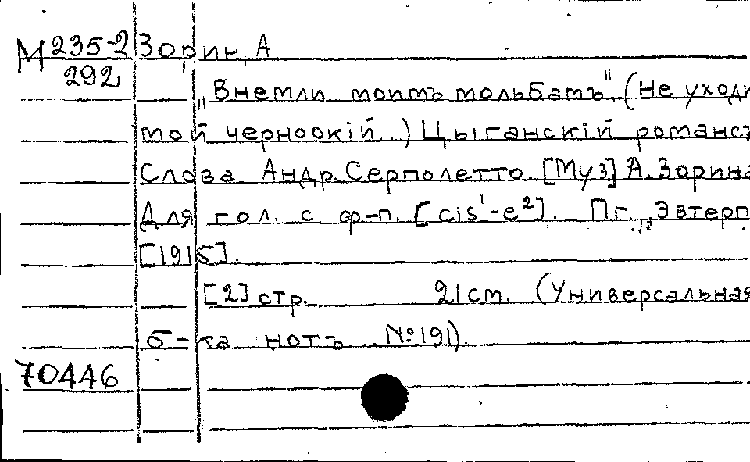 М 235-2 Зорин, А
292
„Внемли моимъ мольбамъ" (Не уходи
мой черноокій.) Цыганскій романсъ
Слова Андр. Серполетто. [Муз] А. Зорина
Для гол. с ф-п. [cis¹-e²]. Пг., „Эвтерп
[1915].
[2] стр. 21 см. (Универсальная
б-ка нотъ №191)
70446